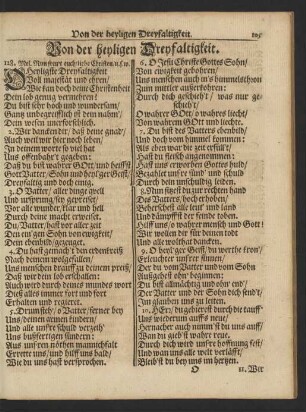 Von der heyligen Dreyfaltigkeit.
Von der heyligen Dreyfaltigkeit.
128. Mel. Nun freut euch liebe Christen u. s. w.
O Heyligste Dreyfaltigkeit
Voll majestät und ehren/
Wie kan doch deine Christenheit
Dein lob genug vermehren?
Du bist sehr hoch und wundersam/
Gantz unbegreifflich ist dein nahm/
Dein wesen unerforschlich.
2. Wir dancken dir/ daß deine gnad/
Auch weil wir hier noch leben/
In deinem worte so viel hat
Uns offenbahrt gegeben:
Daß du bist wahrer GOtt/ und heissst
GOtt Vatter/ Sohn und heyl'ger Geist/
Dreyfaltig und doch einig.
3. O Vatter/ aller dinge quell
Und ursprung/ sey gepreiset/
Vor alle wunder/ klar und hell
Durch deine macht erweiset.
Du/ Vatter/ hast vor aller zeit
Den ein'gen Sohn von ewigkeit/
Dein ebenbild/ gezeuget.
4. Du hast gemacht den erdenkreiß
Nach deinem wolgefallen/
Uns menschen drauff zu deinem preiß/
Daß wir dein lob erschallen:
Auch wird durch deines mundes wort
Diß alles immer fort und fort
Erhalten und regieret.
5. Drum steh/ o Vatter/ ferner bey
Uns/ deinen armen kindern/
Und alle unsre schuld verzeih'
Uns bußfertigen sündern:
Aus unsern nöthen mannichfalt
Errette uns/ und hilff uns bald/
Wie du uns hast versprochen.
6. O JEsu Christe GOttes Sohn/
Von ewigkeit gebohren/
Uns menschen auch im himmelsthron
Zum mittler auserkohren:
Durch dich geschicht/ was nur geschicht/
O wahrer GOtt/ o wahres liecht/
Von wahrem GOtt und liechte.
7. Du bist des Vatters ebenbild/
Und doch vom himmel kommen:
Als eben war die zeit erfüllt/
Hast du fleisch angenommen:
Hast uns erworben GOttes huld/
Bezahlet unsre sünd' und schuld
Durch dein unschuldig leiden.
8. Nun sitzest du zur rechten hand
Des Vatters/ hoch erhoben/
Beherschest alle leut' und land
Und dämpffst der feinde toben.
Hilff uns/ o wahrer mensch und GOtt!
Wir wollen dir für deinen tod
Und alle wolthat dancken.
9. O heyl'ger Geist/ du werthe kron'/
Erleuchter unsrer sinnen/
Der du vom Vatter und vom Sohn
Außgehest ohn' beginnen:
Du bist allmächtig und ohn' end/
Der Vatter und der Sohn dich send't/
Im glauben uns zu leiten.
10. HErr/ du gebierst durch die tauff'
Uns wiederum auffs neue/
Hernacher auch nimmst du uns auff/
Durch dich wird unsre hoffnung fest/
Und wan uns alle welt verläßt/
Bleib'st du bey uns im hertzen.
O
11. Wir